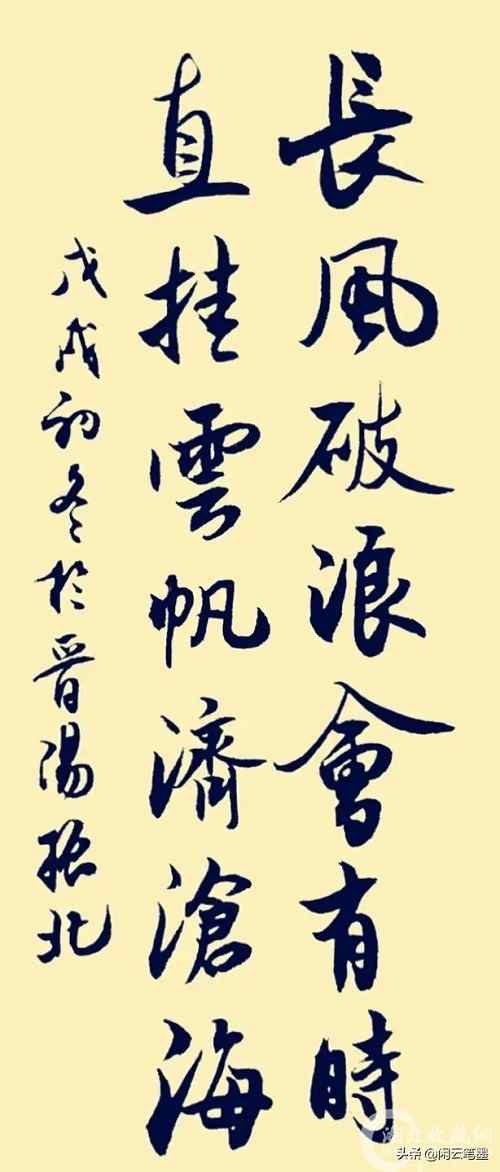 長風破浪會有時
直挂雲帆濟滄海
戊戌初冬於晉陽振北
头条@闲云笔墨